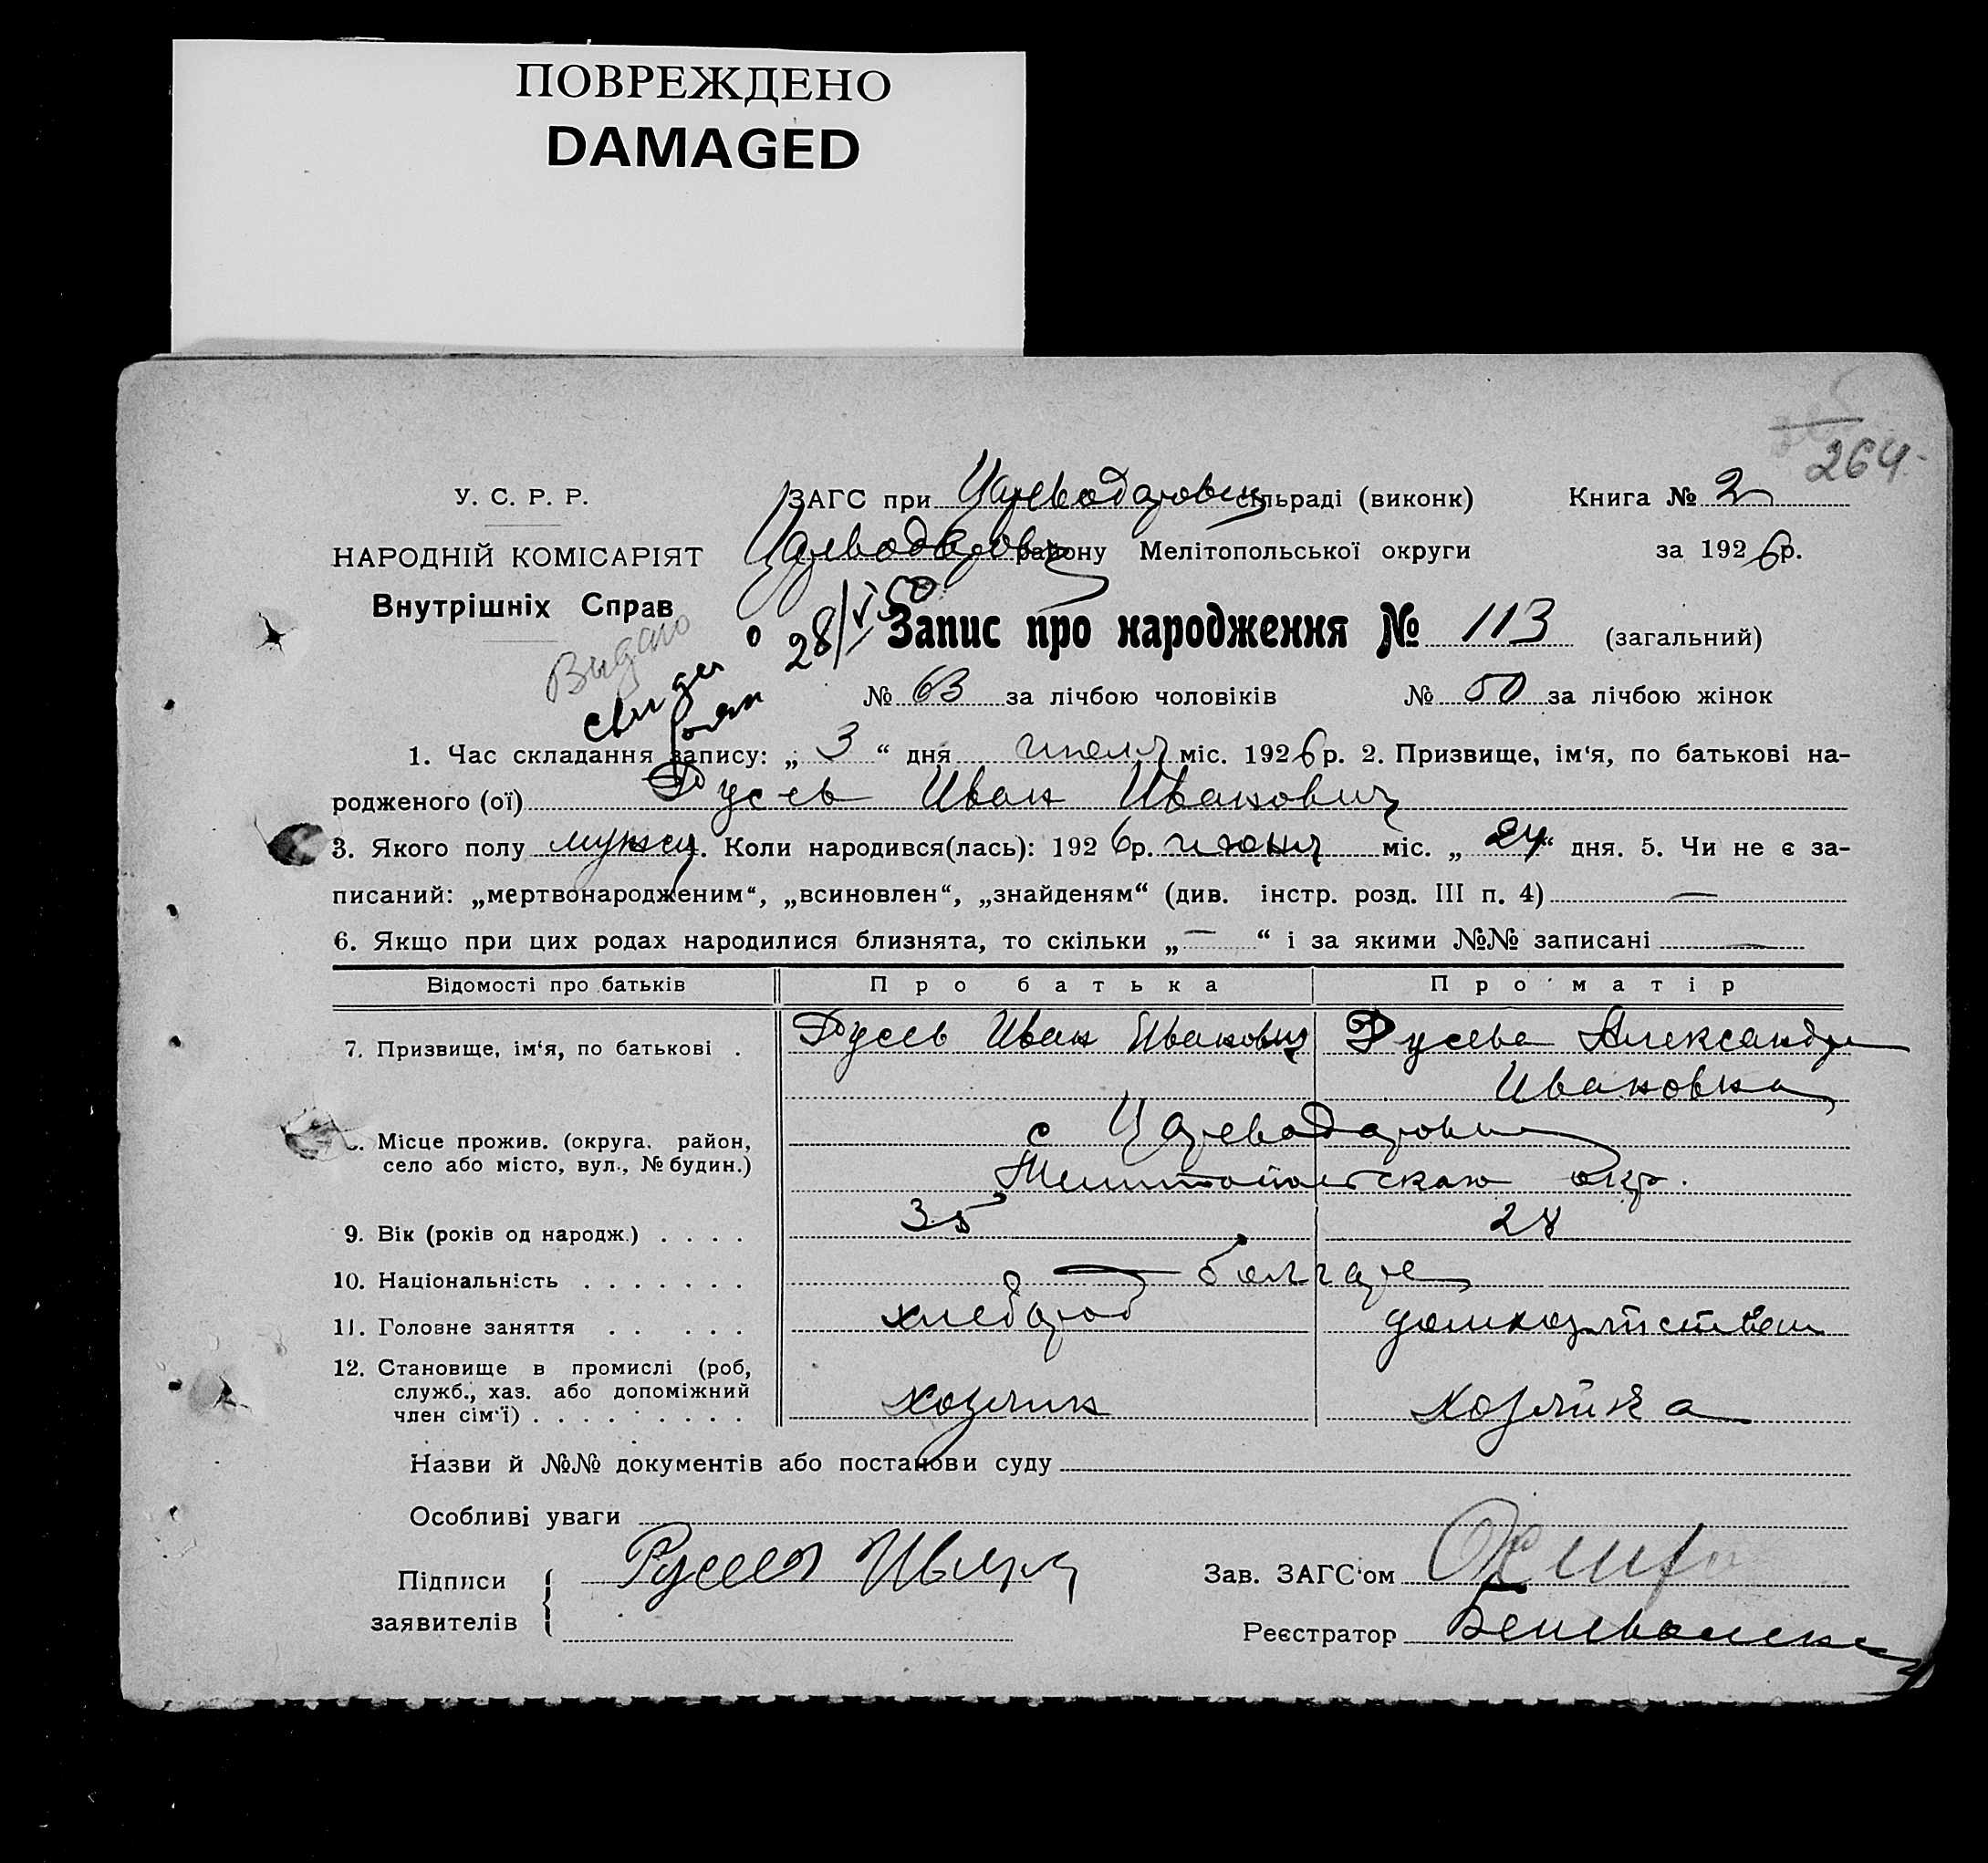 ПОВРЕЖДЕНО
DAMAGED
264
У. С. Р. Р.
ЗАГС при Цареводаровск сільраді (виконк)
Книга № 2
НАРОДНІЙ КОМІСАРІЯТ
Цареводаровск району Мелітопольської округи
за 1926 р.
Внутрішніх Справ
Видано
свид о
рожд
28/V 50
Запис про народження № 113 (загальний)
№ 63 за лічбою чоловіків № 50 за лічбою жінок
1. Час складання запису: „ 3 “ дня июля міс. 1926 р. 2. Призвище, ім‘я, по батькові на-
родженого (ої) Русев Иван Иванович
3. Якого полу мужск. Коли народився(лась): 1926 р. июня міс. „ 24 “ дня. 5. Чи не є за-
писаний: „мертвонародженим“, „всиновлен“, „знайденям“ (див. інстр. розд. III п. 4) —
6. Якщо при цих родах народилися близнята, то скільки „ — “ і за якими №№ записані —
Відомості про батьків
Про батька
Про матір
7. Призвище, ім‘я, по батькові .
Русев Иван Иванович
Русева Александра
Ивановна
Місце прожив. (округа, район,
село або місто, вул., № будин.)
с Цареводаровка
Мелитопольскаго окр.
9. Вік (років од народж.) . . . .
35
28
10. Національність . . . . . . .
— болгаре
11. Головне заняття . . . . . .
хлебороб
домхозяйствен
12. Становище в промислі (роб,
служб., хаз. або допоміжний
член сім‘ї) . . . . . . . . .
хозяин
хозяйка
Назви й №№ документів або постанови суду
Особливі уваги
Підписи
заявителів
Русев Иван
Зав. ЗАГС‘ом
Реєстратор